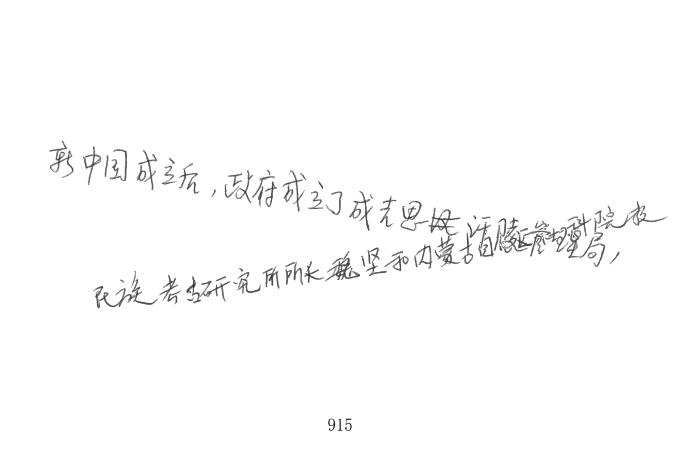 新中国成立后,政府成立了成吉思汗陵管理局,
民族考古研究所所长魏坚和内蒙古科院
915